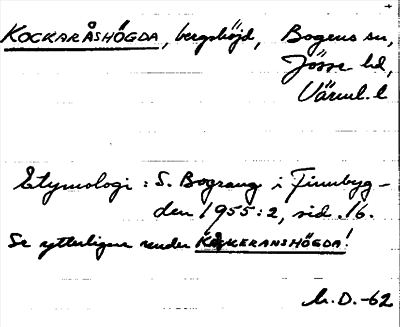 KOCKARÅSHÖGDA, bergshöjd, Bogens sn,
Jösse hd,
Värml. l
Etymologi: S. Bograng i Finnbyg-
den 1955:2, sid. 16.
Se ytterligare under KÅCKERANSHÖGDA!
M.D.-62